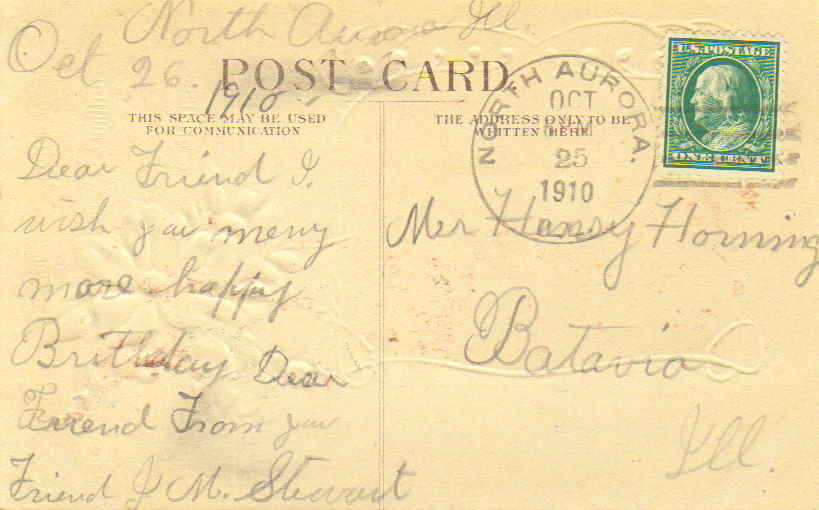 North Aurora Ill.
Oct 26.
1910
POST CARD.
THIS SPACE MAY BE USED
FOR COMMUNICATION
THE ADDRESS ONLY TO BE
WRITTEN HERE
NORTH AURORA.
OCT
25
1910
U.S. POSTAGE
ONE CENT
Dear Friend I.
wish you meny
more happy
Brithday Dear
Friend From you
Friend J M. Stewart
Mer Henry Horning
Batavia
Ill.